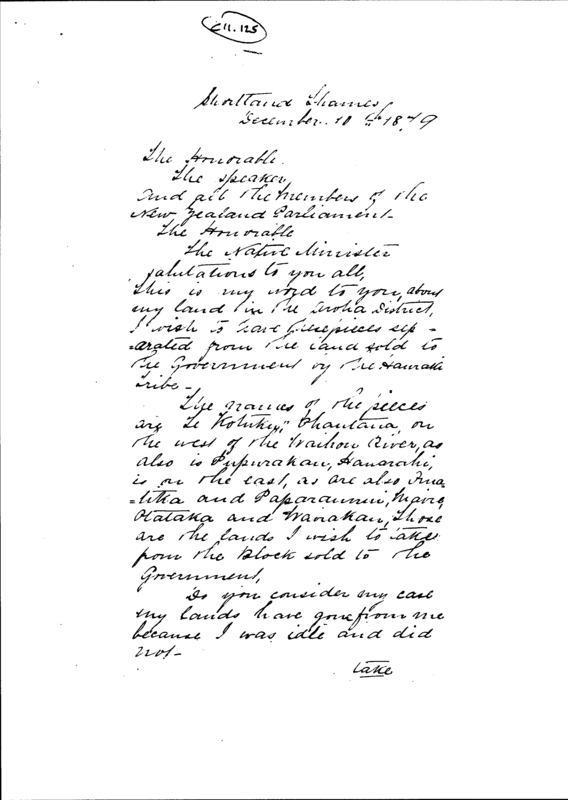 C11.125
Shortland Thames
December. 10th 1879
The Honorable.
The speaker,
and all the Members of the
New Zealand Parliament-
The Honorable
The Native Minister
salutations to you all,
this is my word to you, about
my land in the Aroha District,
I wish to have pieces sep-
-arated from the land sold to
the Government by the Hauraki
Tribe-
The names of the pieces
are Te on
the west of the Waihou River, as
also is
is on the east, as are also
and
and those
are the lands I wish to take
from the Block sold to the
Government,
Do you consider my case
my lands have gone from me
because I was idle and did
not-
take